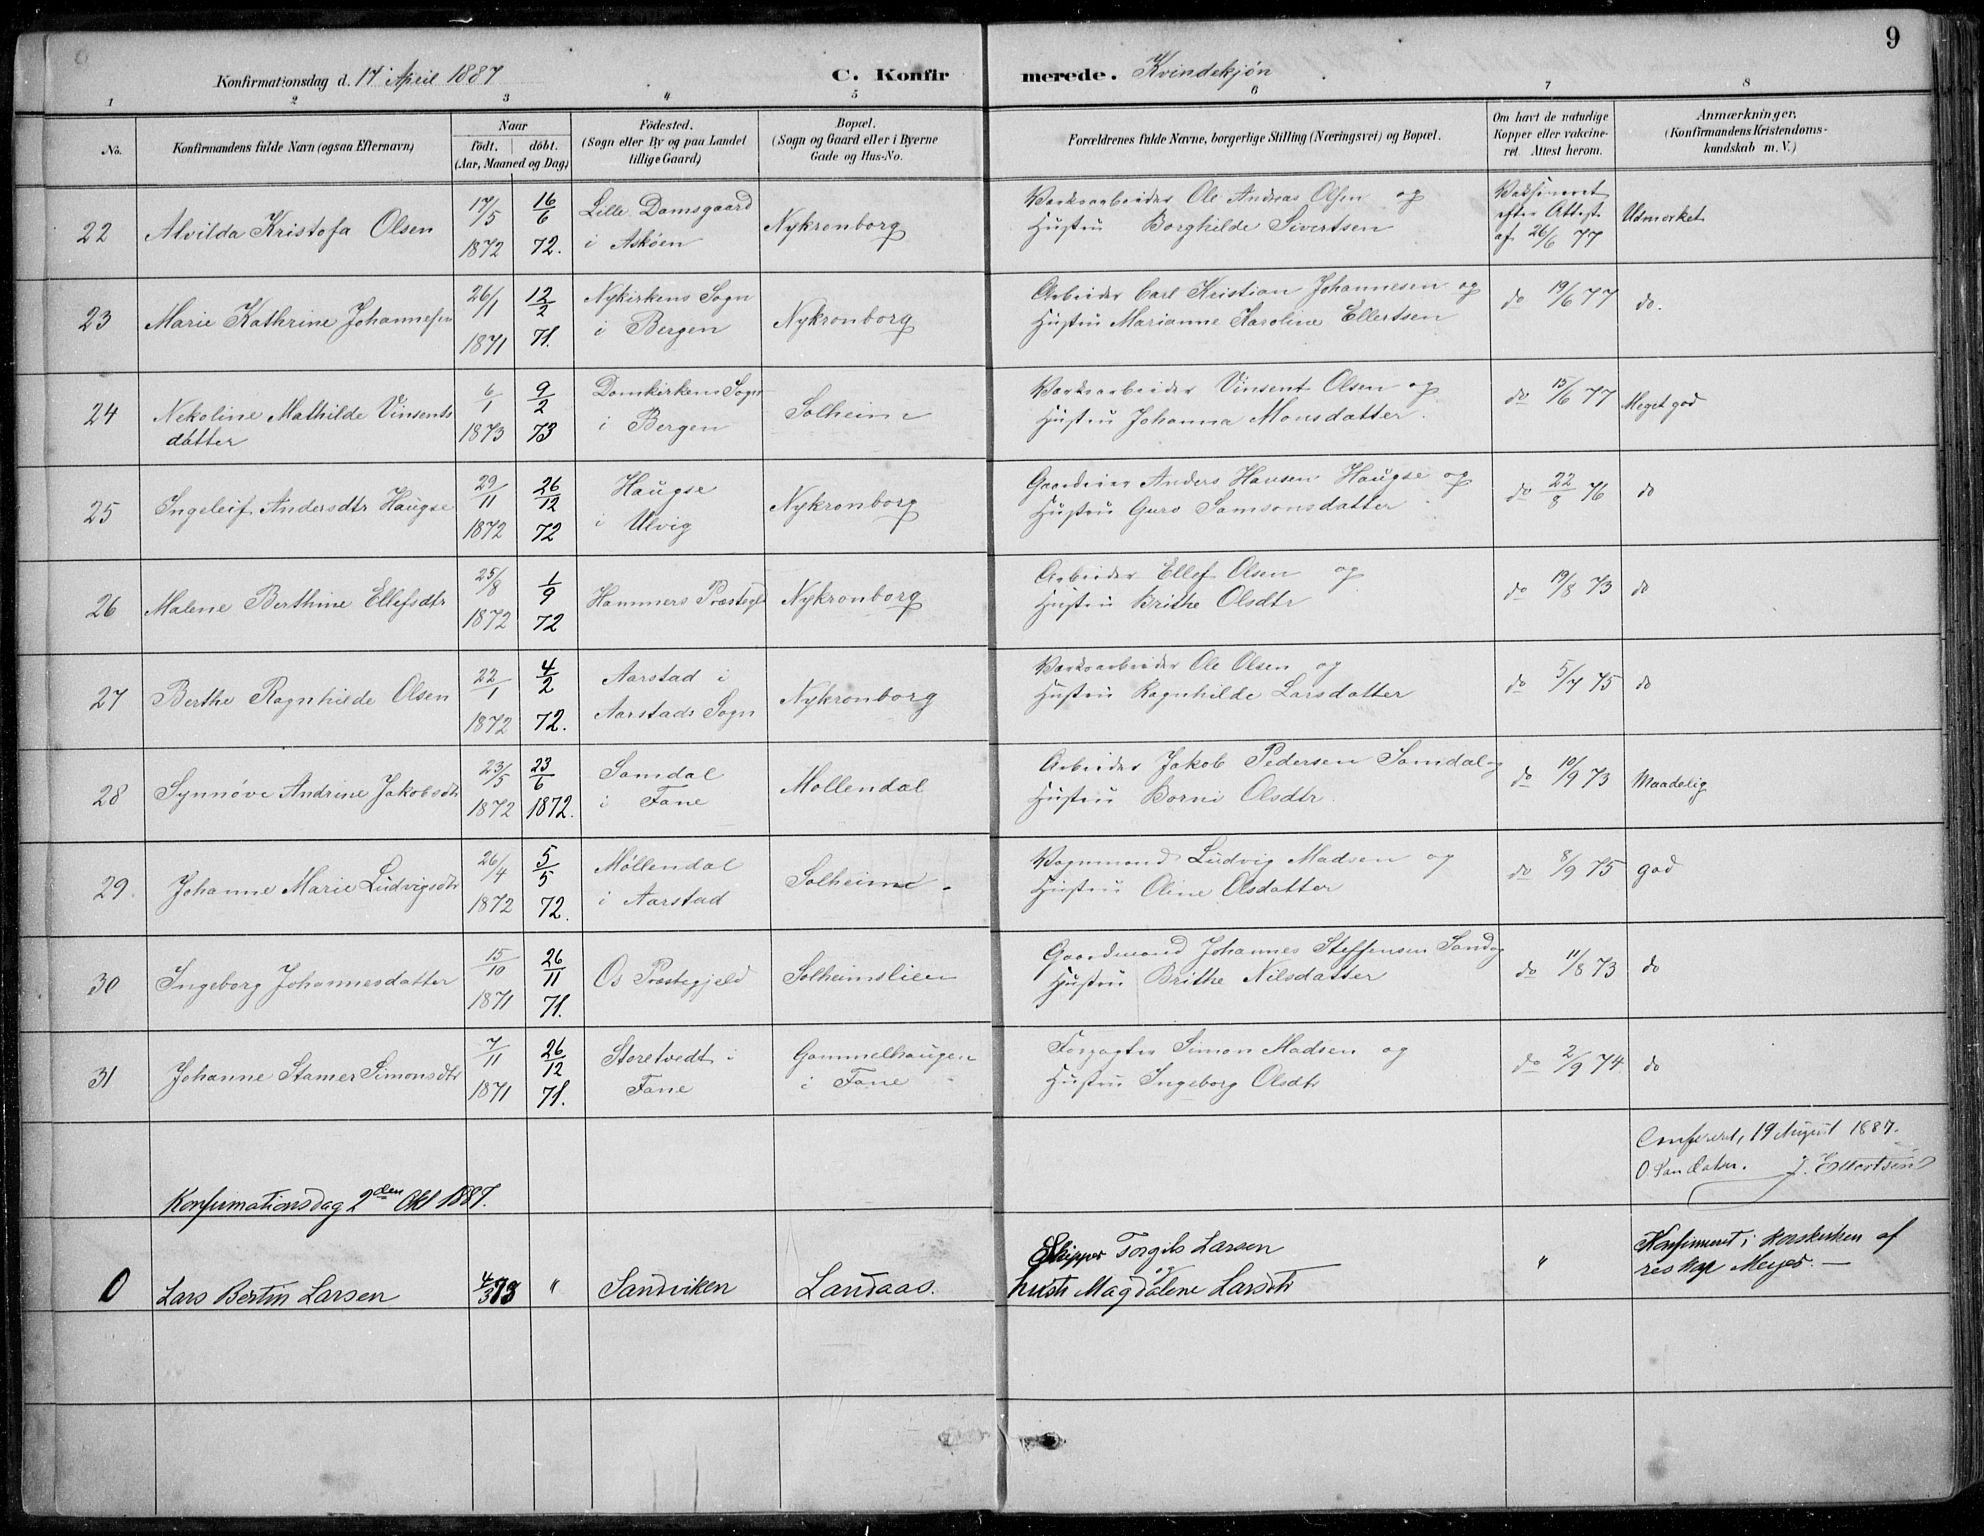 9
Konfirmationsdag d. 17 April 1887 C. Konfirmerede. Kvindekjøn
1 2 3 4 5 6 7 8
No.
Konfirmandens fulde Navn (ogsaa Efternavn)
Naar
født. døbt.
(Aar, Maaned og Dag)
Fødested.
(Sogn eller By og paa Landet
tillige Gaard)
Bopæl.
(Sogn og Gaard eller i Byerne
Gade og Hus-No.
Forældrenes fulde Navne, borgerlige Stilling (Næringsvei) og Bopæl.
Om havt de naturlige
Kopper eller vakcine-
ret. Attest herom.
Anmærkninger,
(Konfirmandens Kristendoms-
kundskab m. V.)
22 Alvilda Kristofa Olsen 17/5 1872 16/6 72. Lille Damsgaard
i Askøen Nykronborg
Værksarbeider Ole Andreas Olsen og
Hustru Borghilde Sivertsen
Vaksineret
efter Attest
af 26/6 77 Udmerket
23 Marie Kathrine Johannesen 26/1 1871 12/2 71. Nykirkens Sogn
i Bergen Nykronborg
Arbeider Carl Kristian Johannesen og
Hustru Marianne Karoline Ellertsen
do 19/6 77 do.
24 Nekoline Mathilde Vinsents
datter 6/1 1873 9/2 73 Domkirkens Sogn
i Bergen Solheim
Værksarbeider Vinsent Olsen og
Hustru Johanna Monsdatter
do 15/6 77 Meget god
25 Ingeleif Andersdtr Haugse 29/11 1872 26/12 72 Haugse
i Ulvig Nykronborg
Gaardeier Anders Hansen Haugse og
Hustru Guro Samsonsdatter
do 22/8 76 do
26 Malene Berthine Ellefsdtr 25/8 1872 1/9 72 Hammers Præstegl Nykronborg
Arbeider Ellef Olsen og
Hustru Brithe Olsdtr
do 19/8 73 do
27 Berthe Ragnhilde Olsen 22/1 1872 4/2 72. Aarstad i
Aarstads Sogn Nykronborg
Værksarbeider Ole Olsen og
Hustru Ragnhilde Larsdatter
do 5/7 75 do
28 Synnøve Andrine Jakobsdtr 23/5 1872 23/6 1872. Samdal
i Fane Møllendal
Arbeider Jakob Pedersen Samdal og
Hustru Borni Olsdtr
do 10/9 73 Maadelig
29. Johanne Marie Ludvigsdtr 26/4 1872 5/5 72. Møllendal
i Aarstad Solheim
Vognmand Ludvig Madsen og
Hustru Oline Olsdatter
do 8/9 75 god
30 Ingeborg Johannesdatter 15/10 1871 26/11 71. Os Præstegjeld Solheimslien
Gaardmand Johannes Steffensen Sand og
Hustru Brithe Nilsdatter
do 11/8 73 do
31 Johanne Stamer Simonsdtr 7/11 1871 26/12 71. Storetvedt i
Fane Gammelhaugen
i Fane
Forpagter Simon Madsen og
Hustru Ingeborg Olsdtr
do 2/9 74 do
Confereret, 19 August 1887.
J. Ellertsen
Konfirmationsdag 2den Okt 1887.
0 Lars Bertin Larsen 4/3 73 " Sandviken Landaas.
Skipper Torgils Larsen
og
Hustr Magdalene Larsdtr
"
Konfirmeret i Korskirken af
res Kap Meyer.